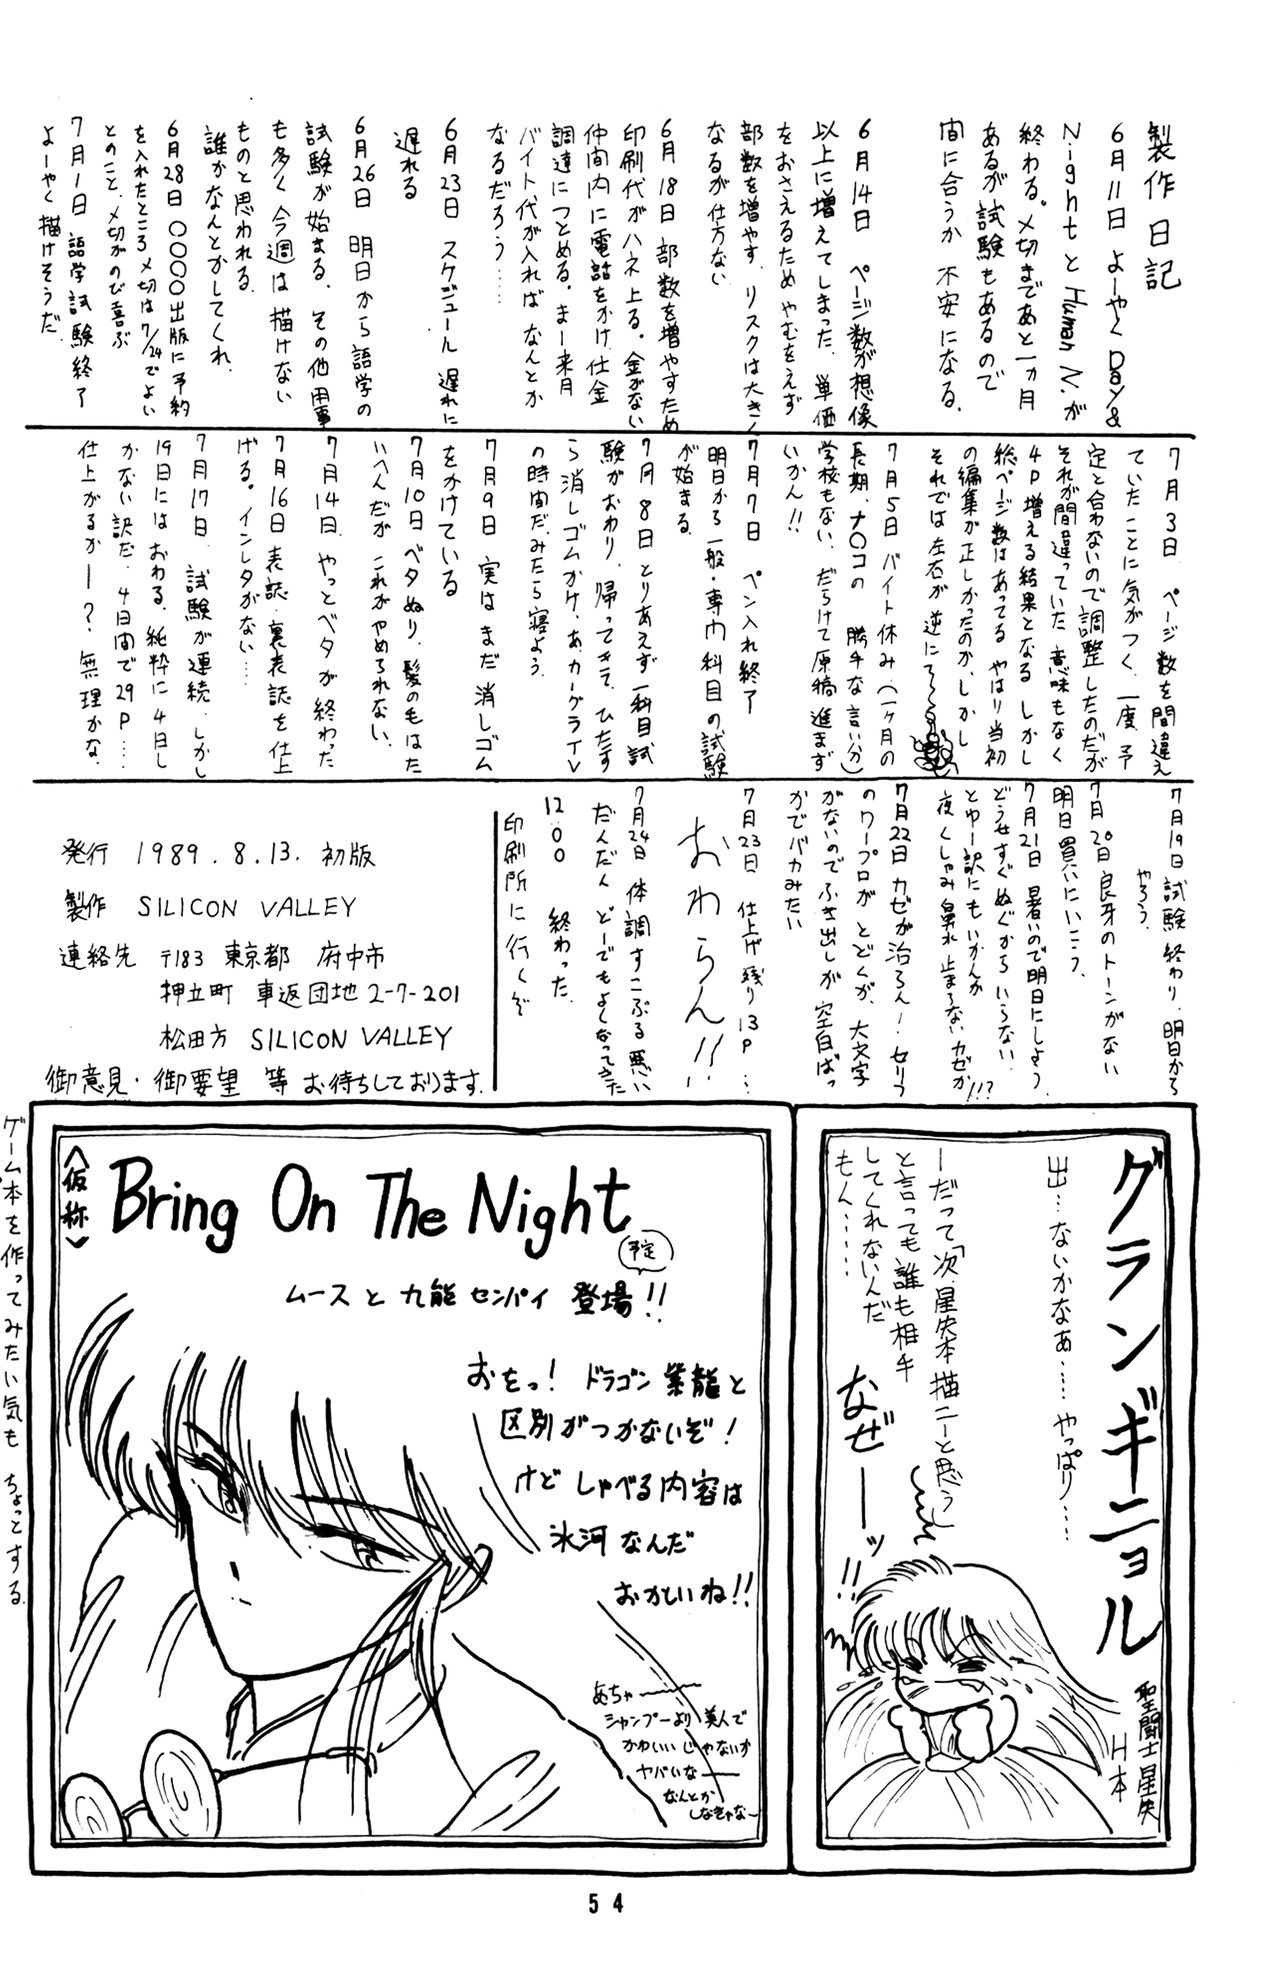 製作日記
6月11日 よーやくDay&
NightとHuman N.が
終わる。〆切まであと一ヵ月
あるが試験もあるので
間に合うか 不安になる.
6月14日 ページ数が想像
以上に増えてしまった. 単価
をおさえるため やむをえず
部数を増やす. リスクは大きく
なるが仕方ない
6月18日 部数を増やすため
印刷代がハネ上る。金がない
仲間内に電話をかけ、仕金
調達につとめる. まー来月
バイト代が入れば なんとか
なるだろう……
6月23日 スケジュール 遅れに
遅れる
6月26日 明日から語学の
試験が始まる. その他用事
も多く 今週は描けない
ものと思われる.
誰かなんとかしてくれ.
6月28日 〇〇〇〇出版に予約
を入れたところ〆切は7/24でよい
とのこと. 〆切がのび喜ぶ
7月1日 語学試験終了
よーやく描けそうだ.
7月3日 ページ数を間違え
ていたことに気がつく. 一度、予
定と合わないので調整したのだが
それが間違っていた 意味もなく
4P増える結果となる しかし
総ページ数はあってる やはり当初
の編集が正しかったのか、しかし
それでは左右が逆にて〜
7月5日 バイト休み.(一ヶ月の
長期. ナ〇コの 勝手な言い分)
学校もない. だらけて原稿進まず
いかん!!
7月7日 ペン入れ終了
明日から一般・専門科目の試験
が始まる.
7月8日 とりあえず一科目試
験がおわり. 帰ってきて、ひたす
ら消しゴムかけ. あ、カーグラTV
の時間だ. みたら寝よう.
7月9日 実はまだ消しゴム
をかけている
7月10日 ベタぬり. 髪の毛はた
いへんだが これがやめられない.
7月14日. やっとベタが終わった
7月16日 表誌・裏表誌を仕上
げる. インレタがない……
7月17日. 試験が連続. しかし
19日にはおわる. 純粋に4日し
かない訳だ. 4日間で29P……
仕上がるかー? 無理かな.
7月19日 試験終わり. 明日から
やろう.
7月20日 良牙のトーンがない
明日買いにいこう.
7月21日 暑いので明日にしよう
どうせすぐぬぐからいらない.
とゆー訳にもいかんか
夜くしゃみ鼻水止まらないカゼか!!?
7月22日 カゼが治らん! セリフ
のワープロが とどくが、大文字
がないのでふき出しが 空白ばっ
かでバカみたい
7月23日 仕上げ残り13P…
おわらん!!
7月24日 体調すこぶる悪い
だんだん どーでもよくなってきた
12:00 終わった.
印刷所に行くぞ
発行 1989.8.13. 初版
製作 SILICON VALLEY
連絡先 〒183 東京都 府中市
押立町 車返団地 2-7-201
松田方 SILICON VALLEY
御意見・御要望 等 お待ちしております.
グランギニョル
聖闘士星矢
H本
出…ないかなあ…… やっぱり……
ーだって「次、星矢本描こーと思う
と言っても誰も相手
してくれないんだ
もん……
なぜーーッ!!
〈仮称〉
Bring On The Night
予定
ムースと九能センパイ 登場!!
おをっ! ドラゴン紫龍と
区別がつかないぞ!
けど しゃべる内容は
氷河なんだ
おかしいね!!
あちゃー
シャンプーより美人で
かわいいじゃないか
ヤバいなー
なんとか
しなきゃなー
ゲーム本を作ってみたい気も ちょっとする.
54